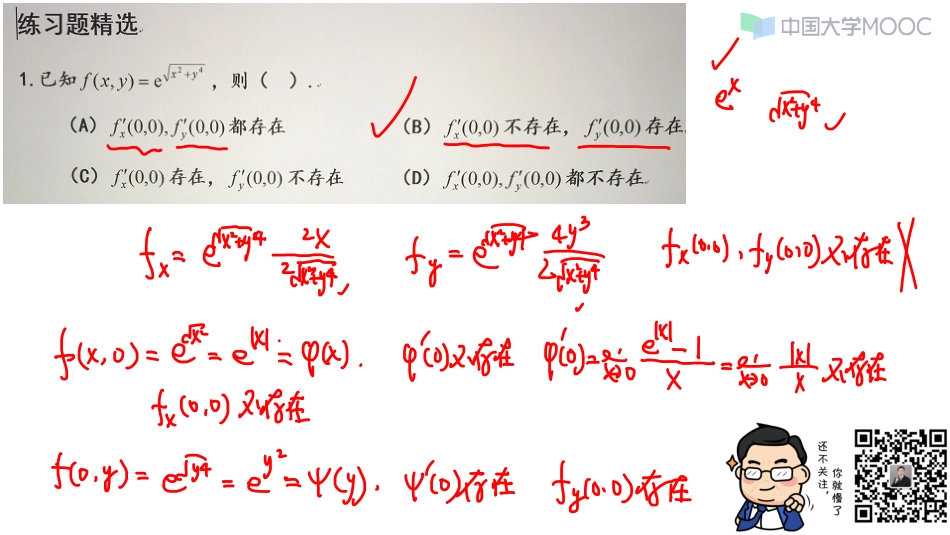 练习题精选
中国大学MOOC
1.已知 f(x,y)=e^{√(x²+y⁴)} ，则（ ）.
(A) f′ₓ(0,0), f′ᵧ(0,0) 都存在 (B) f′ₓ(0,0) 不存在，f′ᵧ(0,0) 存在.
(C) f′ₓ(0,0) 存在，f′ᵧ(0,0) 不存在 (D) f′ₓ(0,0), f′ᵧ(0,0) 都不存在
eˣ √(x²+y⁴)
fₓ = e^{√(x²+y⁴)} 2x/(2√(x²+y⁴)) fᵧ = e^{√(x²+y⁴)} 4y³/(2√(x²+y⁴)) fₓ(0,0), fᵧ(0,0) 不存在
f(x,0) = e^{√x²} = e^{|x|} = φ(x). φ′(0)不存在 φ′(0) = lim x→0 (e^{|x|}-1)/x = lim x→0 |x|/x 不存在
fₓ(0,0) 不存在
f(0,y) = e^{√y⁴} = e^{y²} = ψ(y). ψ′(0)存在 fᵧ(0,0)存在
还不关注，
你就慢了